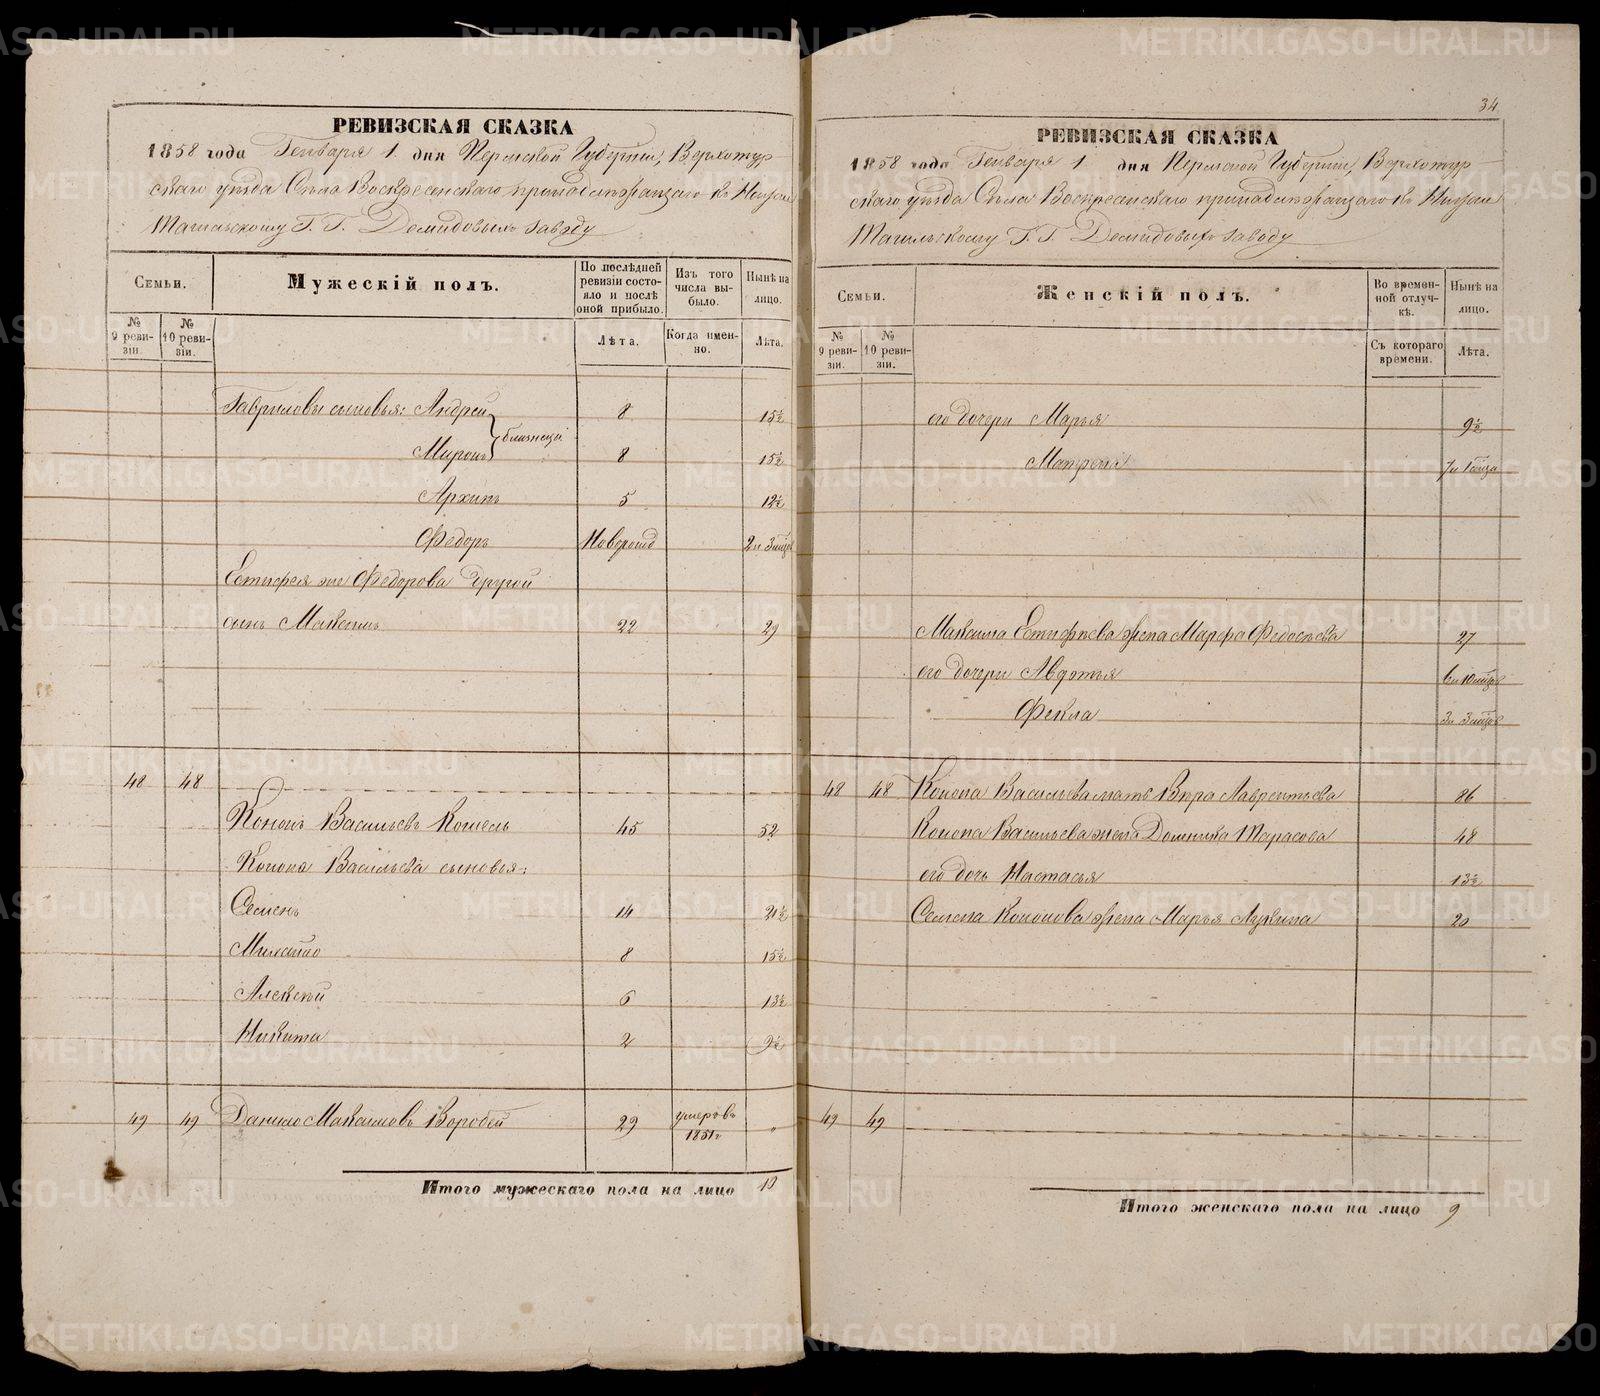 РЕВИЗСКАЯ СКАЗКА
1858 года Генваря 1 дня Пермской Губернии, Верхотур
скаго уѣзда Села Воскресенскаго принадлежащаго къ Нижне
Тагильскому Г. Г. Демидовыхъ заводу
Семьи.
Мужескій полъ.
По послѣдней ревизіи состояло и послѣ оной прибыло.
Изъ того числа выбыло.
Нынѣ на лицо.
№ 9 ревизіи.
№ 10 ревизіи.
Лѣта.
Когда именно.
Лѣта.
Гавриловы сыновья: Андрей 8 15½
Миронъ близнецы 8 15½
Архипъ 5 12½
Федоръ Новорожд 2 и 3 мѣсц
Естифея же Федорова другой
сынъ Максимъ 22 29
48 48
Кононъ Васильевъ Кошель 45 52
Конона Васильева сыновья:
Семенъ 14 21½
Михайло 8 15½
Алексѣй 6 13½
Никита 2 9½
49 49 Данило Максимовъ Воробей 29 умеръ въ 1851 г "
Итого мужескаго пола на лицо 10
34
РЕВИЗСКАЯ СКАЗКА
1858 года Генваря 1 дня Пермской Губернии, Верхотур
скаго уѣзда Села Воскресенскаго принадлежащаго къ Нижне
Тагильскому Г. Г. Демидовыхъ заводу
Семьи.
Женскій полъ.
Во временной отлучкѣ.
Нынѣ на лицо.
№ 9 ревизіи.
№ 10 ревизіи.
Съ котораго времени.
Лѣта.
его дочери Марья 9½
Матрена 7 и 1 мѣсца
Максима Естифѣева жена Марфа Федосѣева 27
его дочери Авдотья 6 и 10 мѣсцв
Фекла 3 и 3 мѣсцв
48 48 Конона Васильева мать Вѣра Лаврентьева 86
Конона Васильева жена Домника Тарасова 48
его дочь Настасья 13½
Семена Кононова жена Марья Лукина 20
49 49
Итого женскаго пола на лицо 9
METRIKI.GASO-URAL.RU